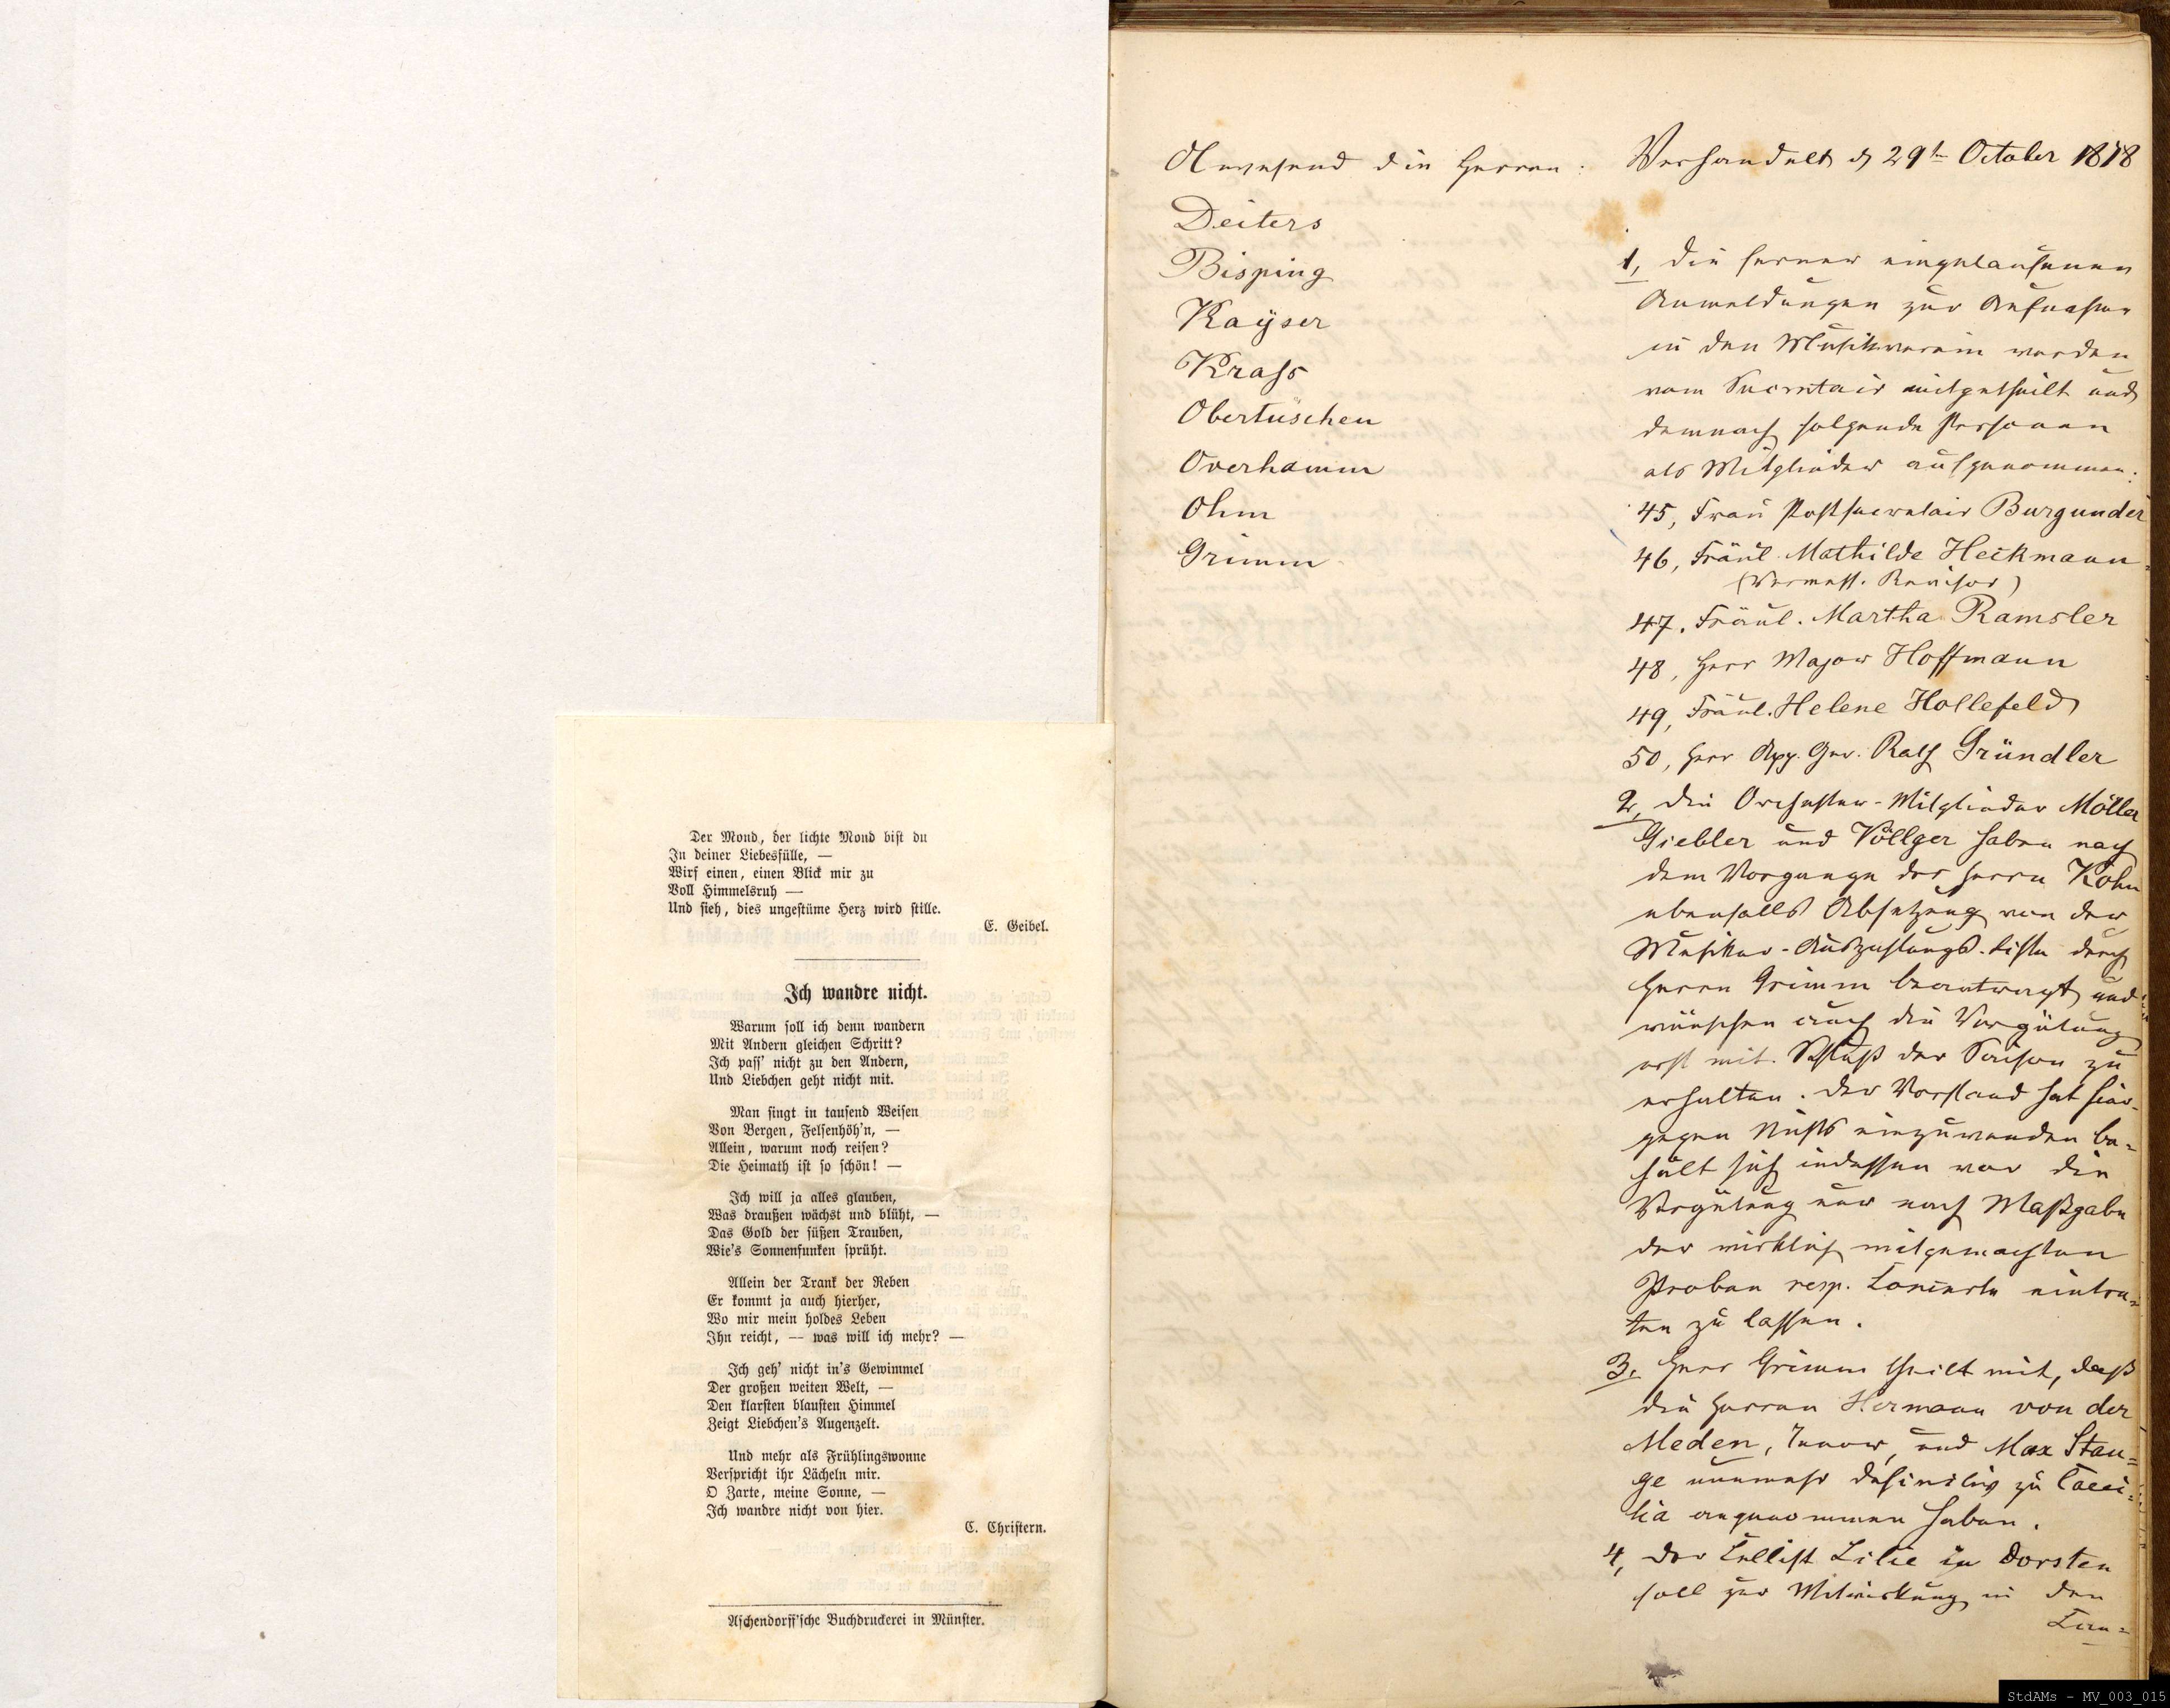 Der Mond, der lichte Mond bist du
In deiner Liebesfülle, —
Wirf einen, einen Blick mir zu
Voll Himmelsruh —
Und sieh, dies ungestüme Herz wird stille.
E. Geibel.
Ich wandre nicht.
Warum soll ich denn wandern
Mit Andern gleichen Schritt?
Ich pass' nicht zu den Andern,
Und Liebchen geht nicht mit.
Man singt in tausend Weisen
Von Bergen, Felsenhöh'n, —
Allein, warum noch reisen?
Die Heimath ist so schön! —
Ich will ja alles glauben,
Was draußen wächst und blüht, —
Das Gold der süßen Trauben,
Wie's Sonnenfunken sprüht.
Allein der Trank der Reben
Er kommt ja auch hierher,
Wo mir mein holdes Leben
Ihn reicht, — was will ich mehr? —
Ich geh' nicht in's Gewimmel
Der großen weiten Welt, —
Den klarsten blausten Himmel
Zeigt Liebchen's Augenzelt.
Und mehr als Frühlingswonne
Verspricht ihr Lächeln mir.
O Zarte, meine Sonne, —
Ich wandre nicht von hier.
C. Christern.
Aschendorff'sche Buchdruckerei in Münster.
Anwesend die Herren:
Deiters
Bisping
Kayser
Krass
Obertüschen
Overhamm
Ohm
Grimm
Verhandelt d 29t October 1878
1, Die ferner eingelaufenen
Anmeldungen zur Aufnahme
in den Musikverein werden
vom Secretair mitgetheilt und
demnach folgende Personen
als Mitglieder aufgenommen:
45, Frau Postsecretair Burgunder
46, Fräul. Mathilde Heckmann
(Vermess. Revisor)
47. Fräul. Martha Ramsler
48, Herr Major Hoffmann
49, Fräul. Helene Hollefeld
50, Herr App. Ger. Rath Gründler
2, Die Orchester-Mitglieder Möller
Giebler und Völlger haben nach
dem Vorgange des Herrn Köhn
ebenfalls Absetzung von der
Musiker-Auszahlungs-Liste durch
Herrn Grimm beantragt und
wünschen auch die Vergütung
erst mit Schluß der Saison zu
erhalten. Der Vorstand hat hier-
gegen Nichts einzuwenden be-
hält sich indessen vor die
Vergütung nur nach Maßgabe
der wirklich mitgemachten
Proben resp. Concerte eintre-
ten zu lassen.
3. Herr Grimm theilt mit, daß
die Herren Hermann von der
Meden, Tenor, und Max Stan=
ge nunmehr definitiv zu Caeci=
lia angenommen haben.
4, Der Cellist Lilie in Dorsten
soll zur Mitwirkung in den
Con=
StdAMs - MV_003_015